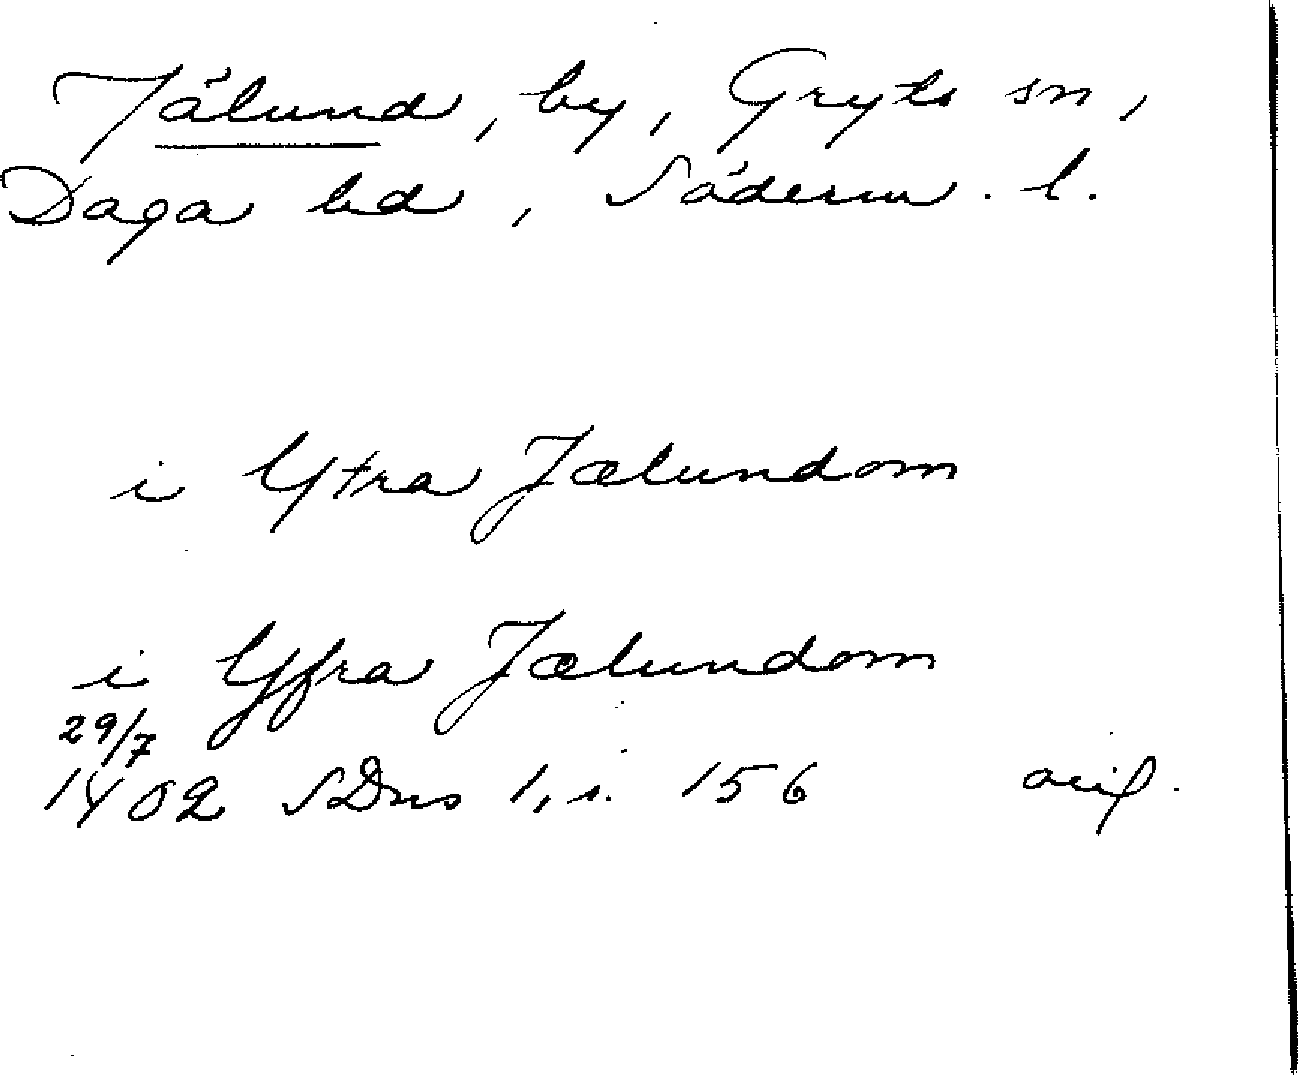 Jälund, by, Gryts sn,
Daga hd, Söderm. l.
i Ytra Jælundom
i Yfra Jælundom
29/7
1402 SDns 1, s. 156 avif.